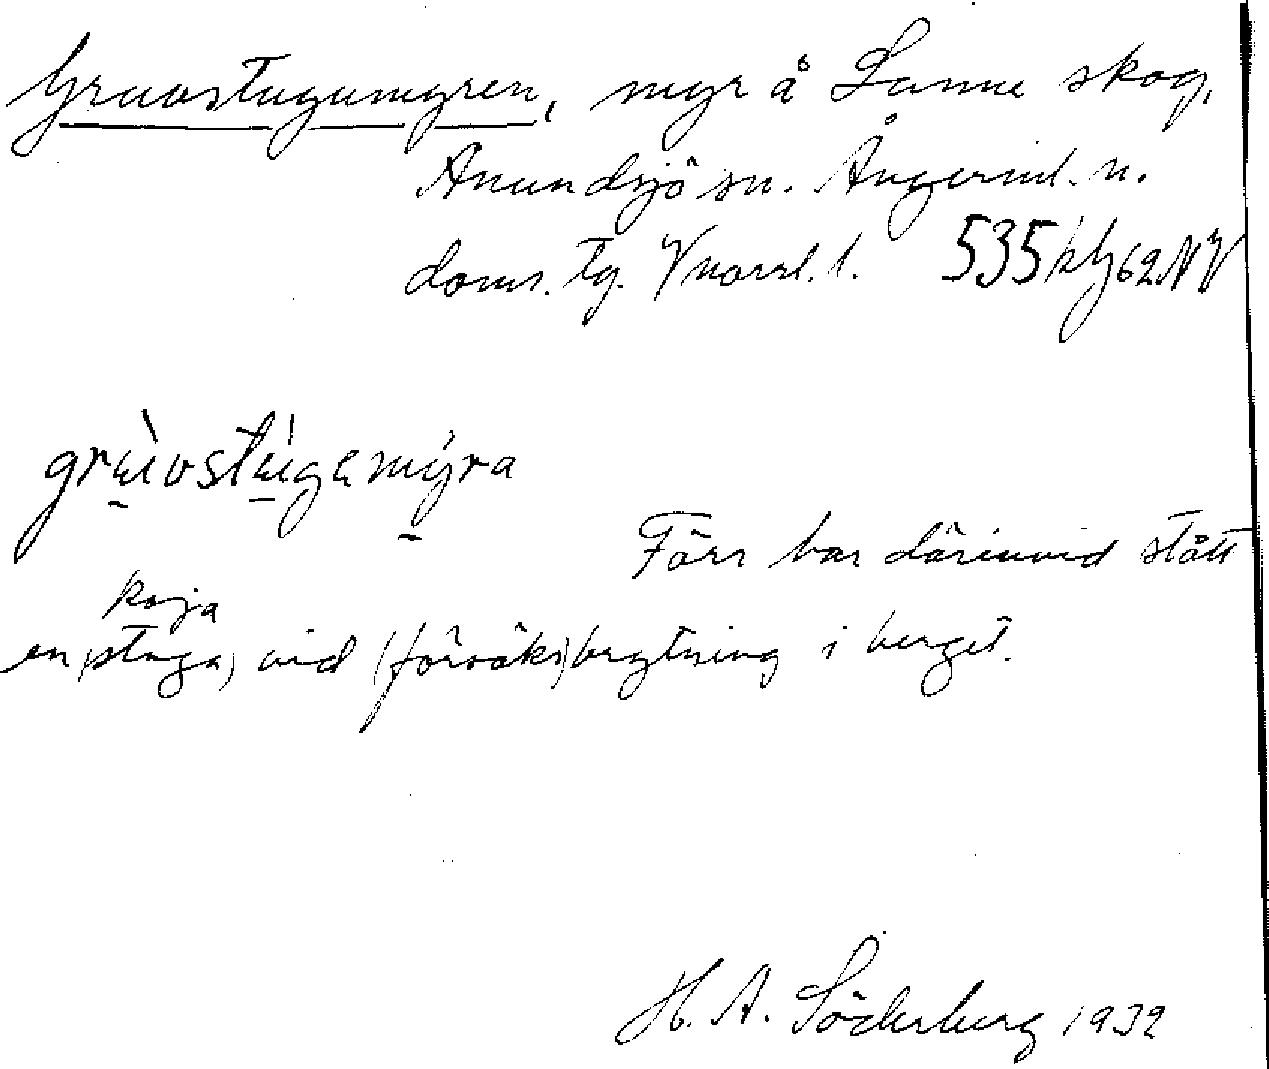 Gruvstugumyren, myr å Lunne skog,
Anundsjö sn. Ångerml. n.
doms. tg. Vnorrl. l. 535 kbj 62 NV
gruvstugumyra
Förr har därinvid stått
koja
en (stuga) vid (försöks)brytning i berget.
H. A. Söderberg 1932